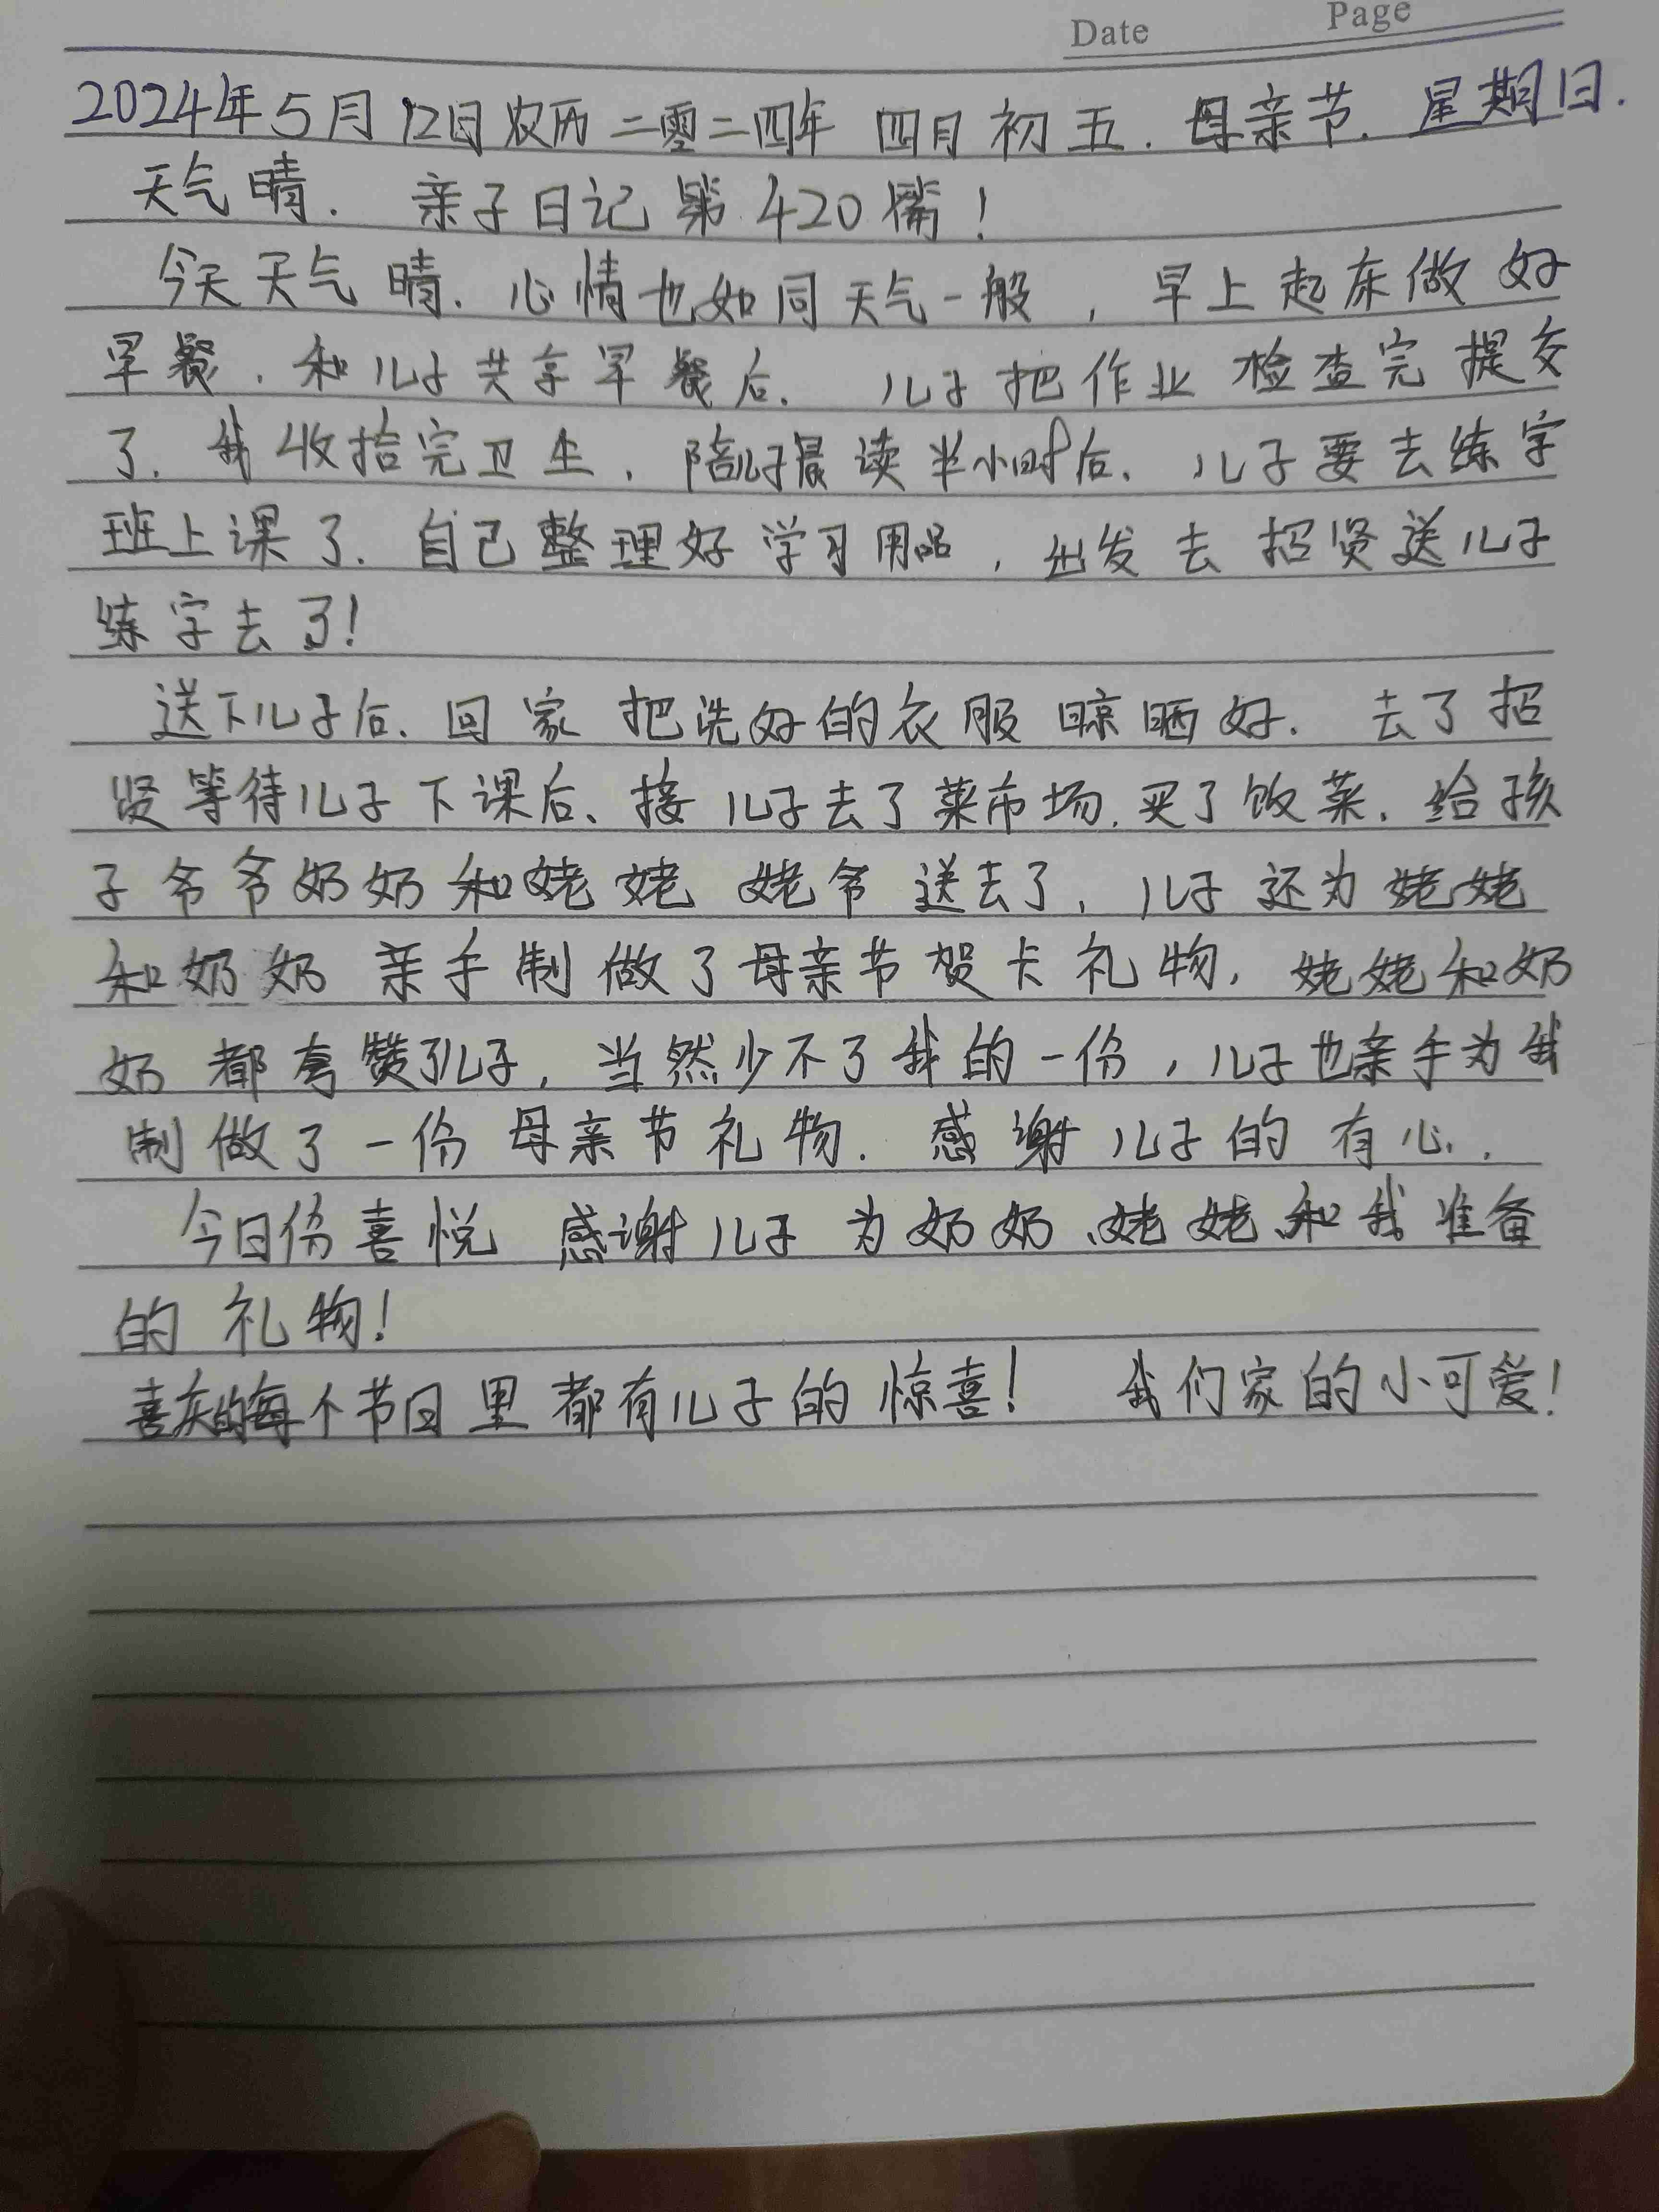 Date Page
2024年5月12日农历二零二四年 四月初五. 母亲节. 星期日.
天气晴. 亲子日记第420篇!
今天天气晴. 心情也如同天气一般, 早上起床做好
早餐. 和儿子共享早餐后. 儿子把作业检查完提交
了. 我收拾完卫生. 陪儿子晨读半小时后. 儿子要去练字
班上课了. 自己整理好学习用品, 出发去招贤送儿子
练字去了!
送下儿子后. 回家把洗好的衣服晾晒好. 去了招
贤等待儿子下课后、接儿子去了菜市场. 买了饭菜. 给孩
子爷爷奶奶和姥姥姥爷送去了, 儿子还为姥姥
和奶奶亲手制做了母亲节贺卡礼物, 姥姥和奶
奶都夸赞了儿子, 当然少不了我的一份, 儿子也亲手为我
制做了一份母亲节礼物. 感谢儿子的有心.
今日份喜悦 感谢儿子为奶奶、姥姥和我准备
的礼物!
喜庆的每个节日里都有儿子的惊喜! 我们家的小可爱!